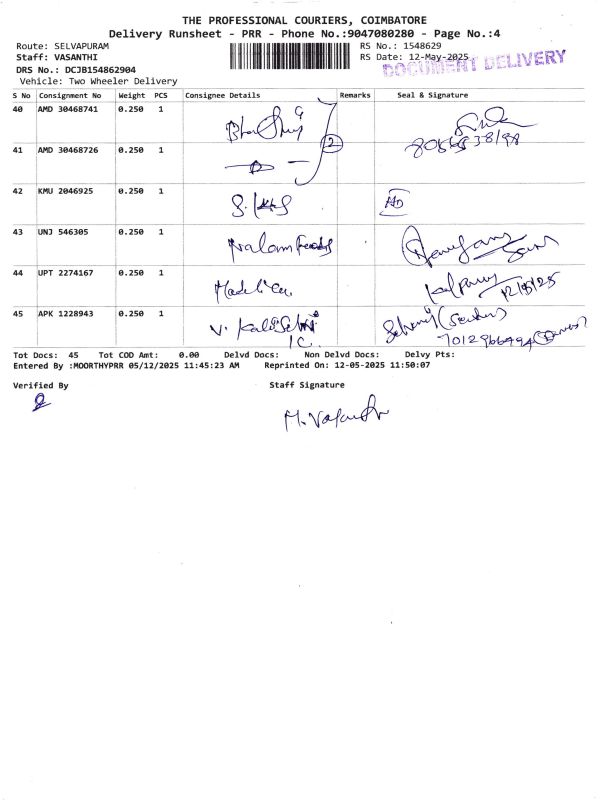 THE PROFESSIONAL COURIERS, COIMBATORE
Delivery Runsheet - PRR - Phone No.:9047080280 - Page No.:4
Route: SELVAPURAM
Staff: VASANTHI
DRS No.: DCJB154862904
Vehicle: Two Wheeler Delivery
RS No.: 1548629
RS Date: 12-May-2025
DOCUMENT DELIVERY
S No Consignment No Weight PCS Consignee Details Remarks Seal & Signature
40 AMD 30468741 0.250 1
41 AMD 30468726 0.250 1
2
42 KMU 2046925 0.250 1
43 UNJ 546305 0.250 1 Nalam Foods
44 UPT 2274167 0.250 1
12/05/25
45 APK 1228943 0.250 1 V. Kalai Selvi
Tot Docs: 45 Tot COD Amt: 0.00 Delvd Docs: Non Delvd Docs: Delvy Pts:
Entered By :MOORTHYPRR 05/12/2025 11:45:23 AM Reprinted On: 12-05-2025 11:50:07
Verified By Staff Signature
M. Vasanthi